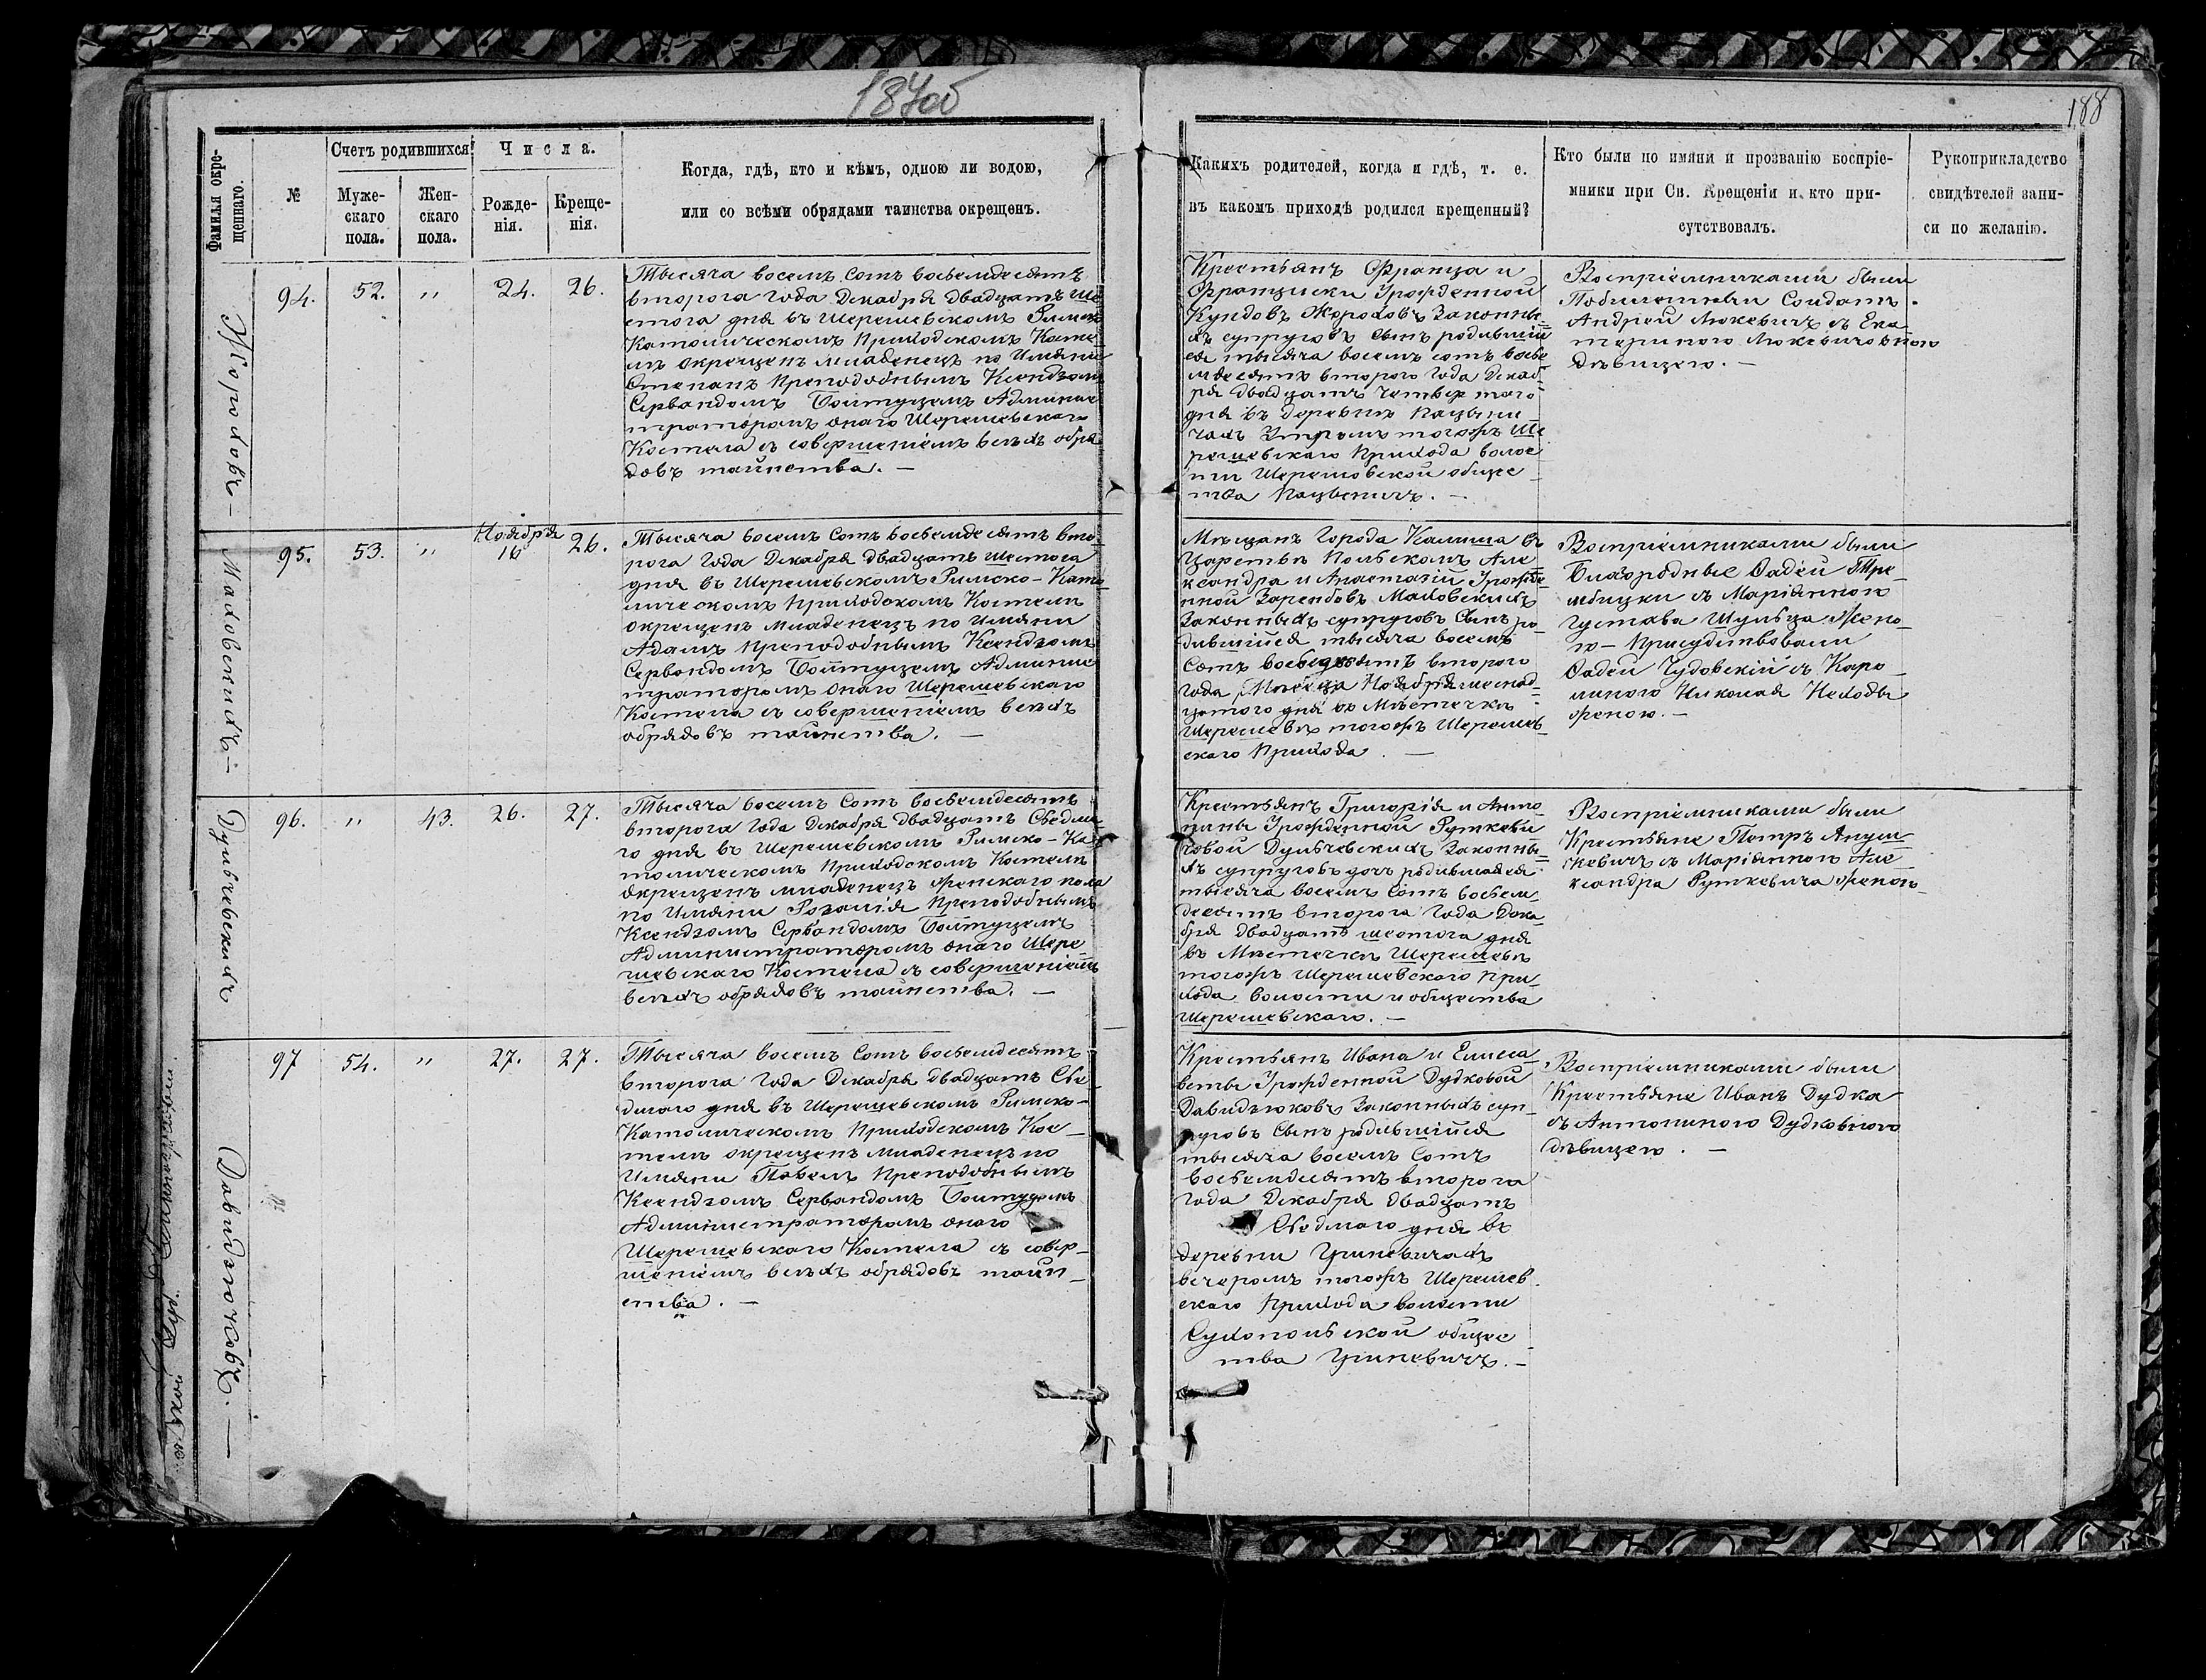 187об
188
Фамилья окре-
щеннаго.
№
Счетъ родившихся
Муже-
скаго
пола.
Жен-
скаго
пола.
Числа.
Рожде-
нія.
Креще-
нія.
Когда, гдѣ, кто и кѣмъ, одною ли водою,
или со всѣми обрядами таинства окрещенъ.
Какихъ родителей, когда и гдѣ, т. е.
въ какомъ приходѣ родился крещенный?
Кто были по имяни и прозванію воспріе-
мники при Св. Крещеніи и кто при-
сутствовалъ.
Рукоприкладство
свидѣтелей запи-
си по желанію.
94.
52.
"
24.
26.
Тысяча восемь сотъ восьмдесятъ
второга года Декабря двадцать ше
стога дня въ Шерешевскомъ Римско
Католическомъ Приходскомъ Косте-
лѣ окрещенъ младенецъ по Имяни
Степанъ Преподобнымъ Ксендзомъ
Сервандомъ Бойтуцемъ Админис
траторомъ онаго Шерешевскаго
Костела съ совершеніемъ всѣхъ обря
довъ таинства. —
Крестьянъ Франца и
Франциски Урожденной
Жороховъ Законны-
хъ супруговъ Сынъ родившій
ся тысяча восемь сотъ восьм
мдесятъ второго года Декаб-
ря двадцать четвертого
дня въ деревнѣ
Утромъ тогожъ Ше
решевскаго Прихода волос
ти Шерешовской общес
тва Пацевичъ. —
Воспріемниками были
Солдатъ
Андрей Люкевичъ съ Ека-
териною Люкевичовною
дѣвицею. —
95.
53.
"
Ноября
16
26.
Маховскихъ —
Тысяча восемь сотъ восьмдесятъ вто-
рога года Декабря двадцать шестога
дня въ Шерешевскомъ Римско-Като
лическомъ Приходскомъ Костелѣ
окрещенъ младенецъ по имяни
Адамъ Преподобнымъ Ксендзомъ
Сервандомъ Бойтуцемъ Админис
траторомъ онаго Шерешевскаго
Костела съ совершеніемъ всѣхъ
обрядовъ таинства. —
Мѣщанъ Города Калиша въ
Царствѣ Польскомъ Але
ксандра и Анастазіи Урожде-
нной Зарембовъ Маховскихъ
Законныхъ супруговъ Сынъ ро-
дившійся тысяча восемь
Сотъ восьмдесятъ второго
года Мѣсяца Ноября шеснад-
цатого дня въ Мѣстечкѣ
Шерешевѣ тогожъ Шерешев
скаго Прихода. —
Воспріемниками были
Благородные Фадей Тре-
мбицки съ Маріянною
Густава Шульца Жено-
ю — Присудствовали
Фадей Чудовскій съ Каро
линою Николая Неходы
женою. —
96.
"
43.
26.
27.
Дульчевскихъ
Тысяча восемь сотъ восьмдесятъ
второга года Декабря двадцать Седма
го дня въ Шерешевскомъ Римско-Ка
толическомъ Приходскомъ Костелѣ
окрещенъ младенецъ женскаго пола
по Имяни Розалія Преподобнымъ
Ксендзомъ Сервандомъ Бойтуцемъ
Администраторомъ онаго Шере
шевскаго Костела съ совершеніемъ
всѣхъ обрядовъ таинства. —
Крестьянъ Григорія и Анто
нины Урожденной Руткеви
човой Дульчевскихъ Законны-
хъ супруговъ дочъ родившаяся
тысяча восемь сотъ восьм-
десятъ второга года Дека-
бря двадцать шестога дня
въ Мѣстечкѣ Шерешевѣ
тогожъ Шерешевскаго При-
хода волости и общества
Шерешевскаго. —
Воспріемниками были
Крестьяне Петръ Януш
кевичъ съ Маріянною Але
ксандра Руткевича женою
97
54.
"
27.
27.
Давидзюковъ. —
Тысяча восемь сотъ восьмдесятъ
второга года Декабря двадцать Се
дмого дня въ Шерешевскомъ Римско-
Католическомъ Приходскомъ Кос-
телѣ окрещенъ младенецъ по
Имяни Павелъ Преподобнымъ
Ксендзомъ Сервандомъ Бойтуцемъ
Администраторомъ онаго
Шерешевскаго Костела съ совер-
шеніемъ всѣхъ обрядовъ таин-
ства. —
Крестьянъ Ивана и Елиса-
веты Урожденной Дудковой
Давидзюковъ Законныхъ суп-
руговъ Сынъ родившійся
тысяча восемь Сотъ
восьмдесятъ второга
года Декабря двадцать
Седмого дня въ
деревни Гриневичахъ
вечеромъ тогожъ Шерешев
скаго Прихода волости
Сухопольской общес
тва Гриневичъ. —
Воспріемниками были
Крестьяне Иванъ Дудка
съ Антониною Дудковного
дѣвицею. —